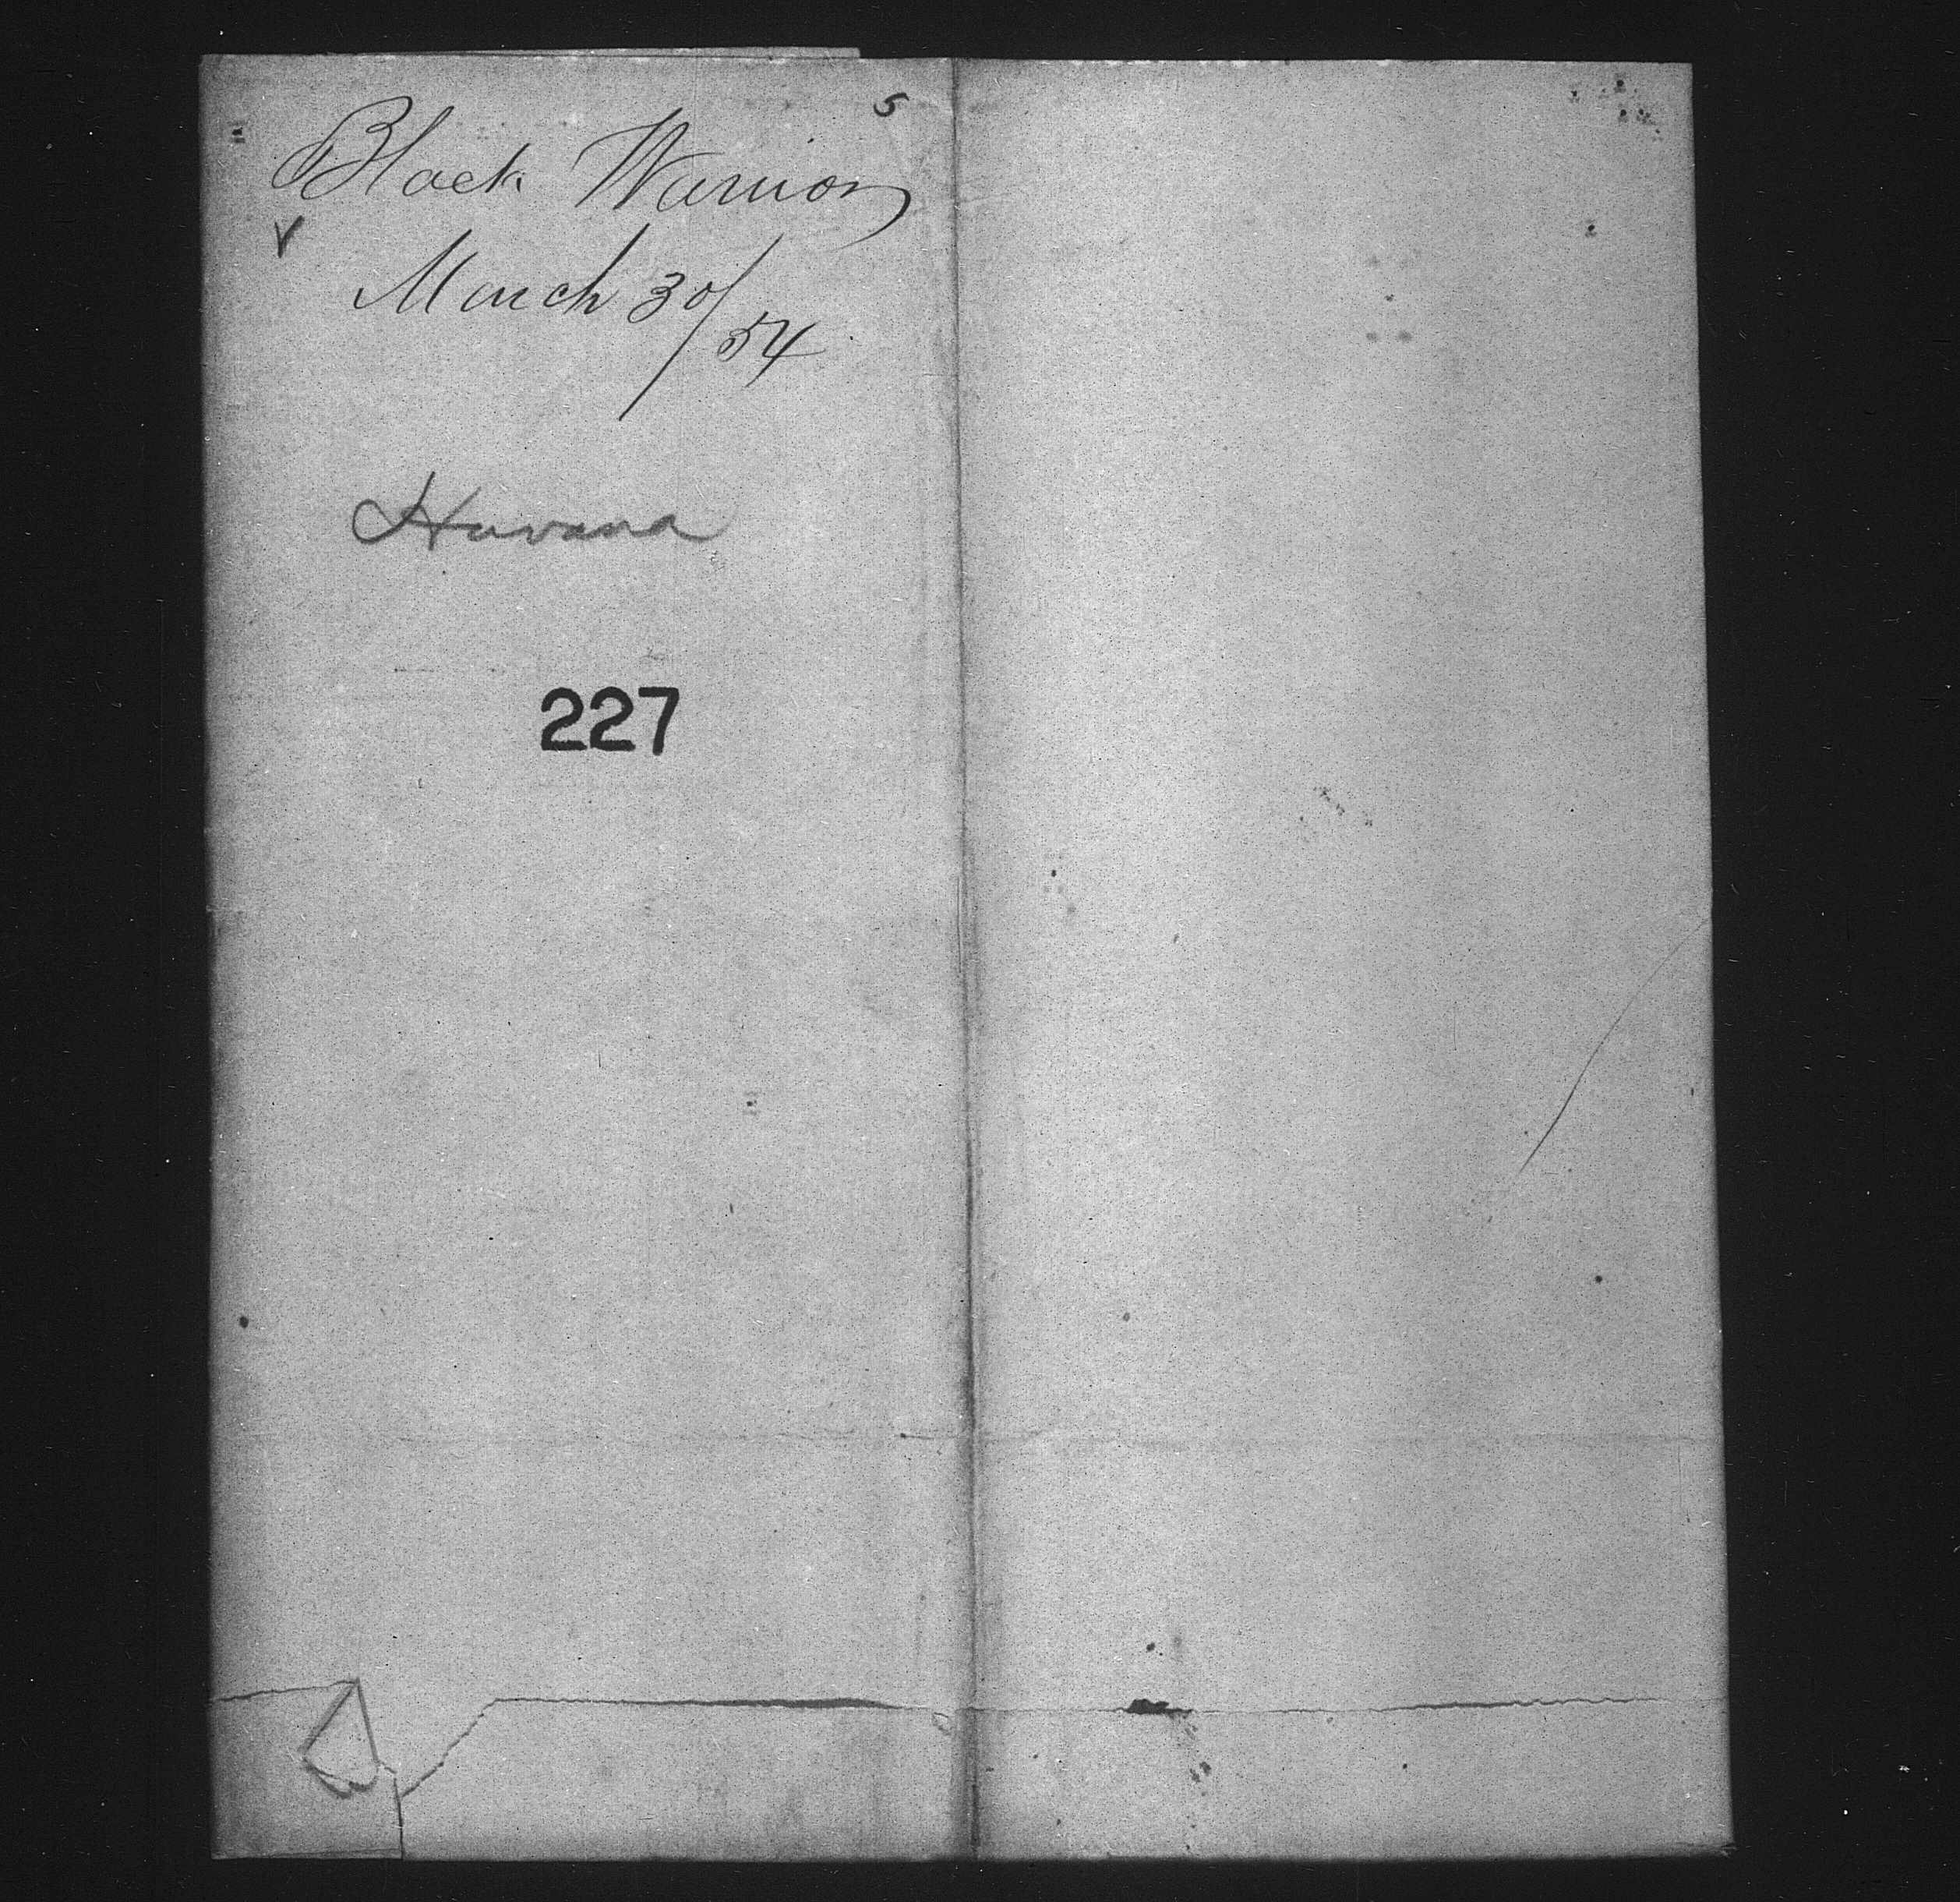 5
Black Warrior
March 30/54
Havana
227